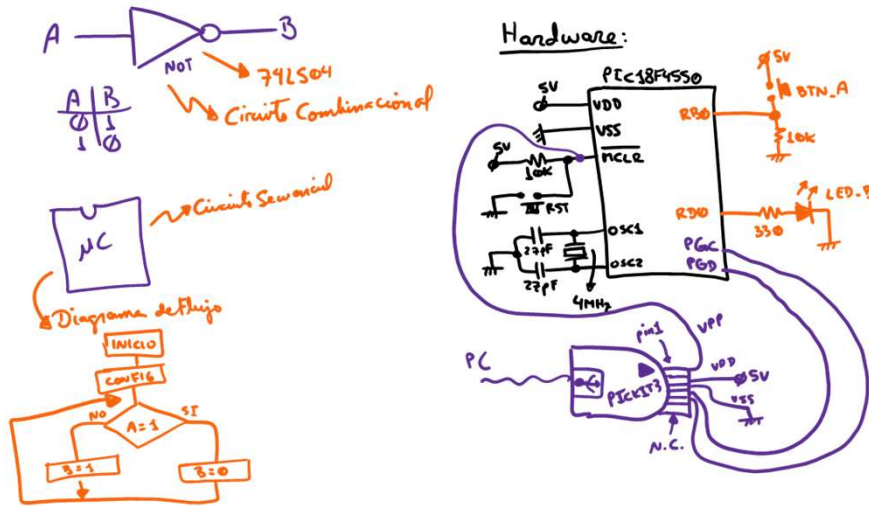 A
B
NOT
74LS04
Circuito Combinacional
A B
0 1
1 0
µC
Circuito Secuencial
Diagrama de Flujo
INICIO
CONFIG
NO
SI
A=1
B=1
B=0
Hardware:
PIC18F4550
5V
VDD
VSS
5V
10K
MCLR
RST
OSC1
27pF
OSC2
22pF
4MHz
5V
BTN_A
RB0
10K
RD0
330
LED_B
PGC
PGD
PC
PICKIT3
pin1
VPP
VDD
5V
VSS
N.C.